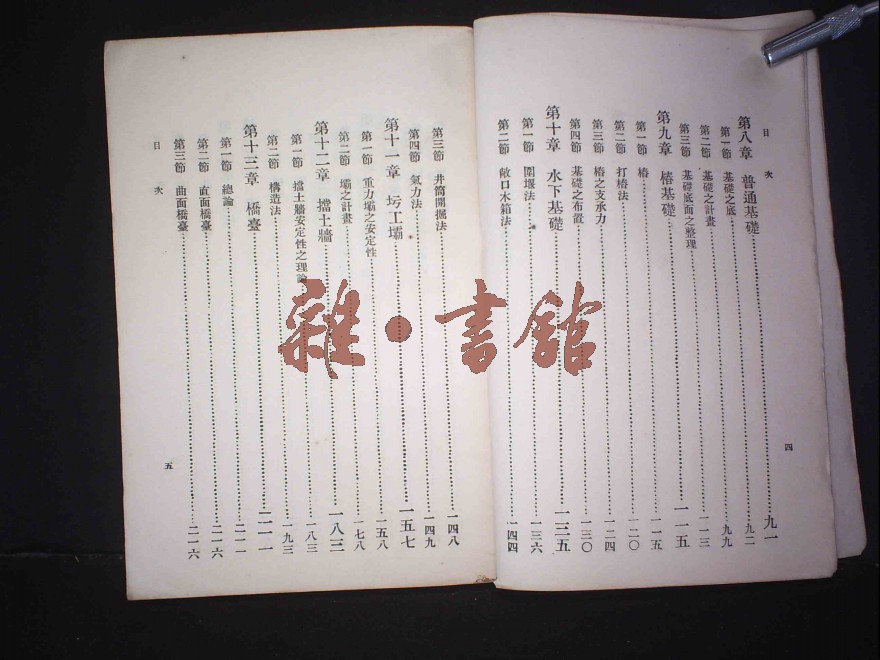 目次
第八章 普通基礎……九一
第一節 基礎之底……九二
第二節 基礎之計畫……九九
第三節 基礎底面之整理……一一三
第九章 樁基礎……一一五
第一節 樁……一一五
第二節 打樁法……一二〇
第三節 樁之支承力……一二四
第四節 基礎之布置……一三〇
第十章 水下基礎……一三五
第一節 圍堰法……一三六
第二節 敞口木箱法……一四四
四
第三節 井筒開掘法……一四八
第四節 氣力法……一四九
第十一章 圬工壩……一五七
第一節 重力壩之安定性……一五八
第二節 壩之計畫……一七八
第十二章 擋土牆……一八三
第一節 擋土牆安定性之理論……一八三
第二節 構造法……一九三
第十三章 橋臺……二一一
第一節 總論……二一一
第二節 直面橋臺……二一六
第三節 曲面橋臺……二一六
目次
五
雜·書館